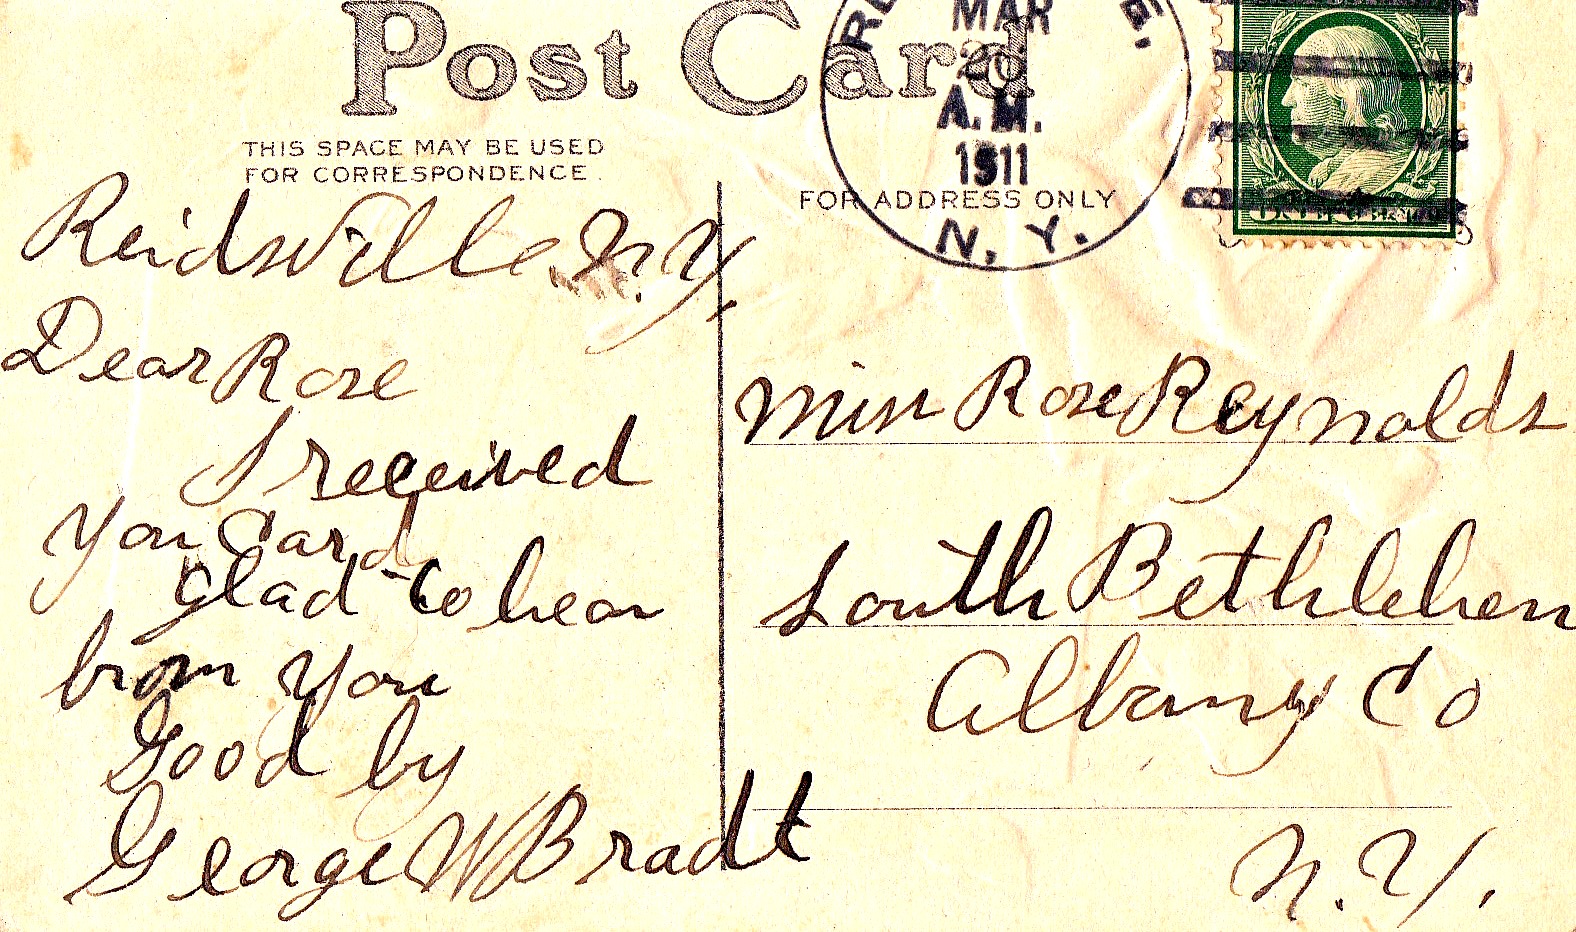 Post Card
THIS SPACE MAY BE USED
FOR CORRESPONDENCE.
FOR ADDRESS ONLY
MAR
A.M.
1911
N. Y.
ReidsVille N.Y.
Dear Rose
I received
You Card
glad to hear
from you
Good by
George W Bradt
Miss Rose Reynolds
South Bethlehem
Albany Co
N.Y.